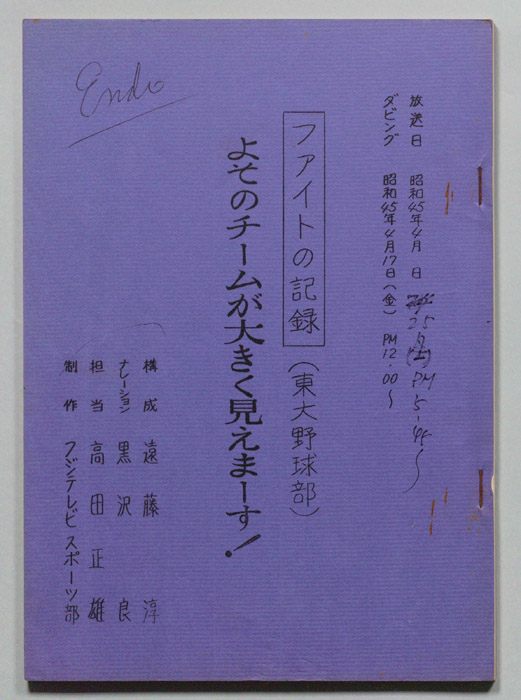 放送日 昭和45年4月 日 25日(土)PM 5-45.~
ダビング 昭和45年4月17日(金) PM 12.00~
ファイトの記録(東大野球部)
よそのチームが大きく見えまーす!
構成 遠藤 淳
ナレーション 黒沢 良
担当 高田正雄
制作 フジテレビスポーツ部
Endo